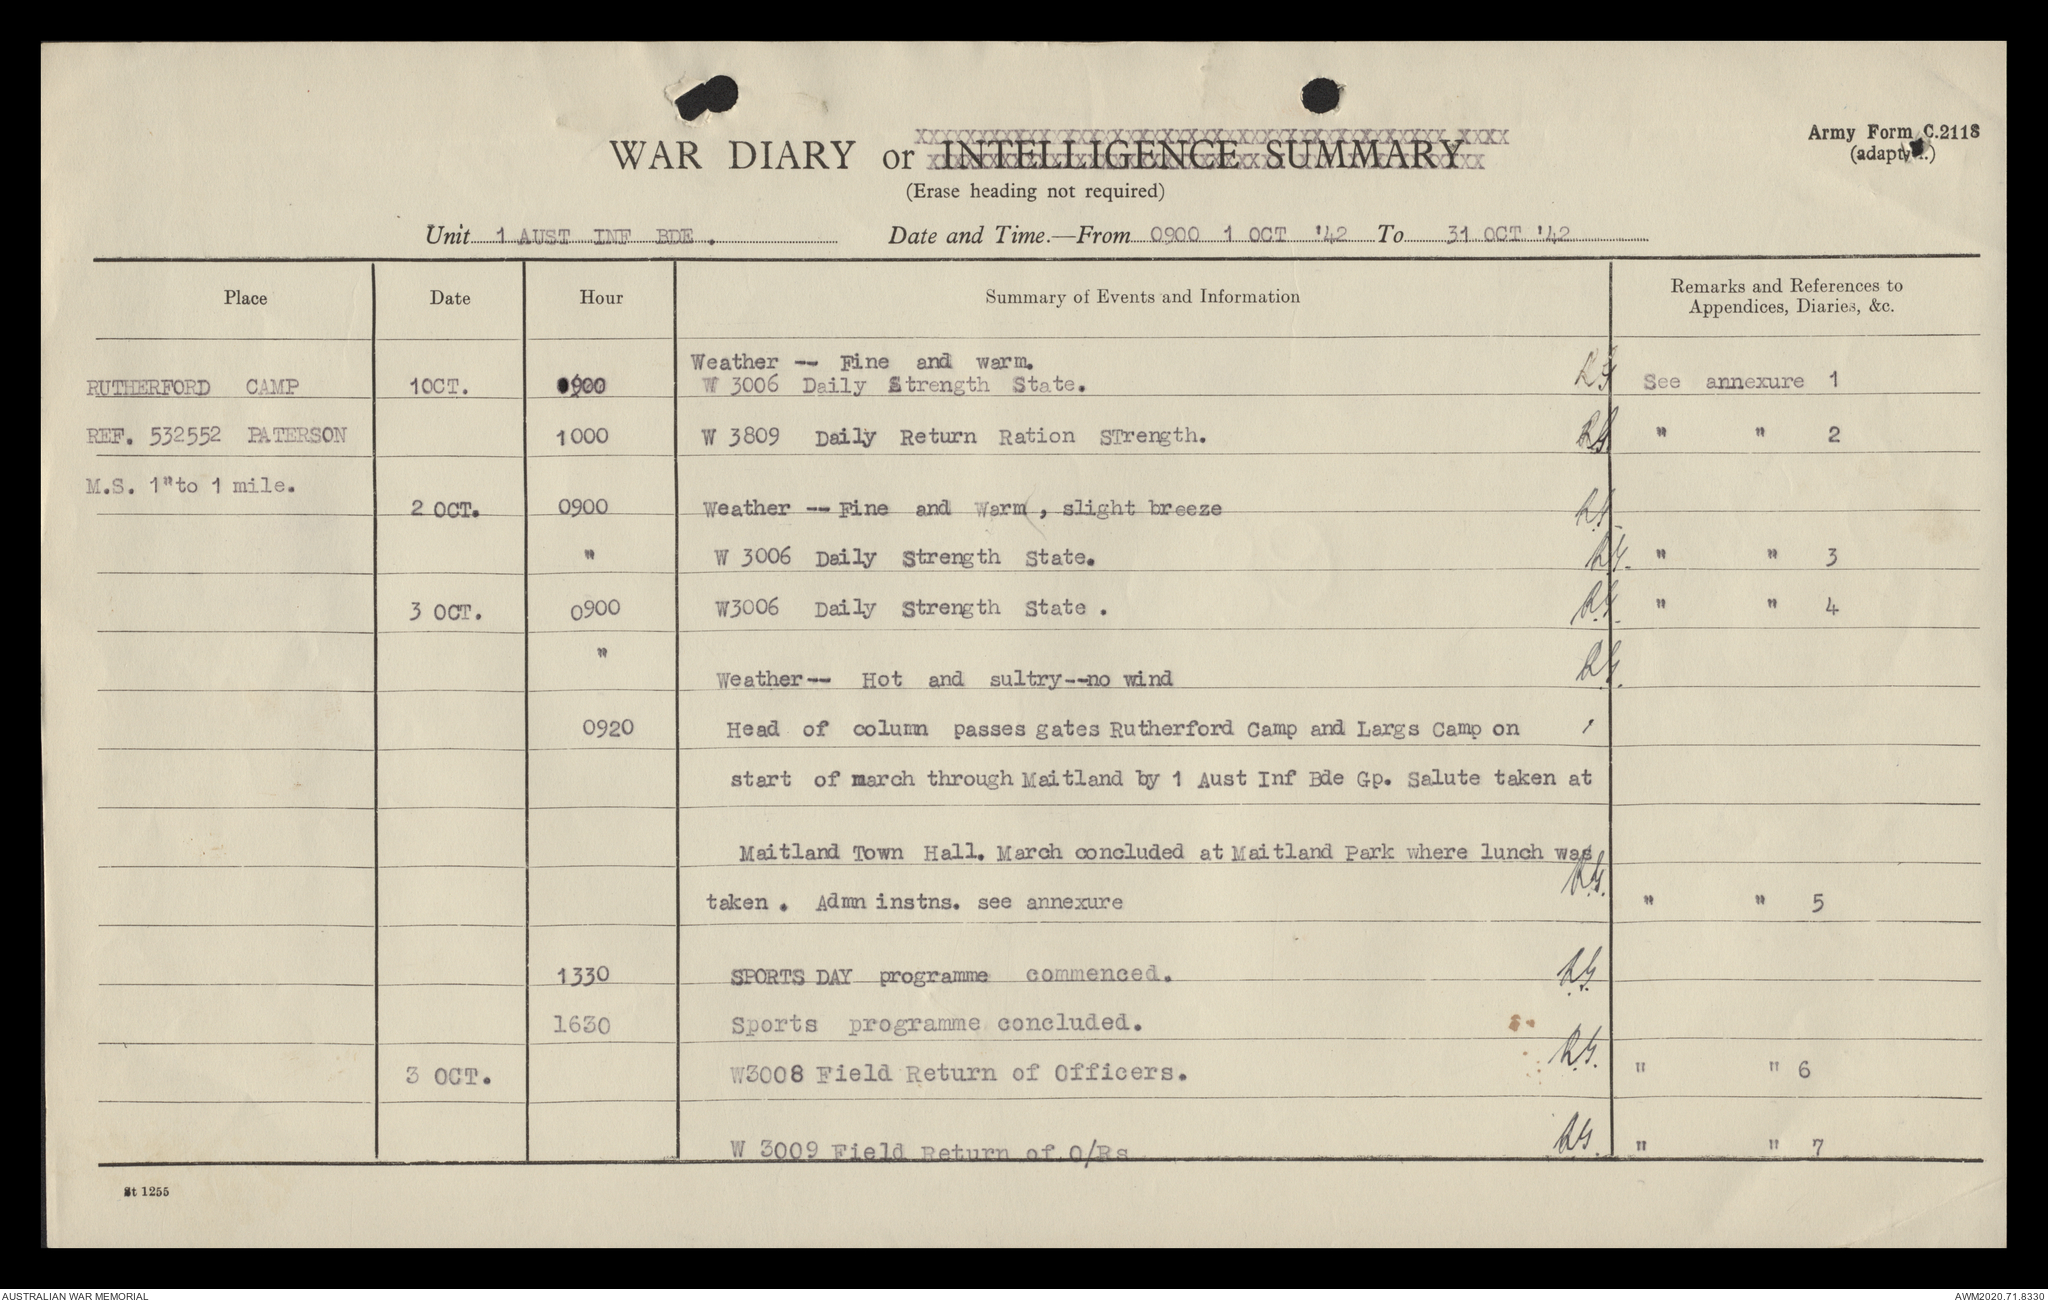 WAR DIARY or INTELLIGENCE SUMMARY
Army Form C.2118
(Erase heading not required)
Unit 1 AUST INF BDE . Date and Time.—From 0900 1 OCT '42 To 31 OCT '42
Place Date Hour Summary of Events and Information Remarks and References to
Appendices, Diaries, &c.
Weather -- Fine and warm.
RUTHERFORD CAMP 1OCT. 0900 W 3006 Daily Strength State. RG See annexure 1
REF. 532552 PATERSON 1000 W 3809 Daily Return Ration STrength. RG " " 2
M.S. 1"to 1 mile.
2 OCT. 0900 Weather -- Fine and Warm , slight breeze RG.
" W 3006 Daily Strength State. RG. " " 3
3 OCT. 0900 W3006 Daily Strength State . RG. " " 4
"
Weather-- Hot and sultry--no wind RG.
0920 Head of column passes gates Rutherford Camp and Largs Camp on
start of march through Maitland by 1 Aust Inf Bde Gp. Salute taken at
Maitland Town Hall. March concluded at Maitland Park where lunch was
taken . Admn instns. see annexure RG. " " 5
1330 SPORTS DAY programme commenced. RG.
1630 Sports programme concluded.
3 OCT. W3008 Field Return of Officers. RG. " " 6
W 3009 Field Return of O/Rs RG. " " 7
St 1255
AUSTRALIAN WAR MEMORIAL AWM2020.71.8330